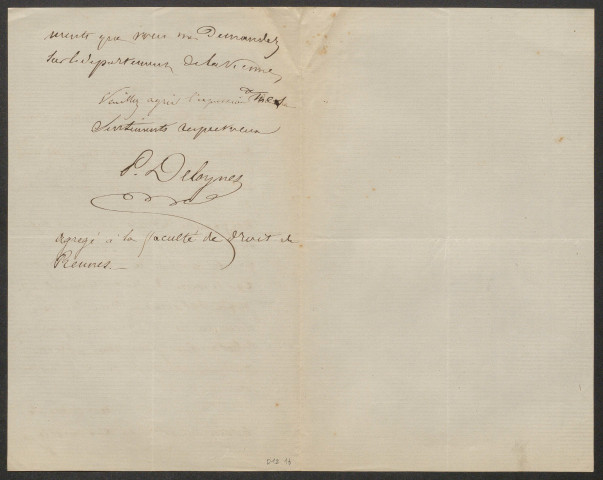 ments que vous me Demandez
sur le département de la Vienne,
Veuillez agréer l'expression de mes
Sentiments respectueux
P. Deloynes
agrégé à la faculté de Droit de
Rennes.